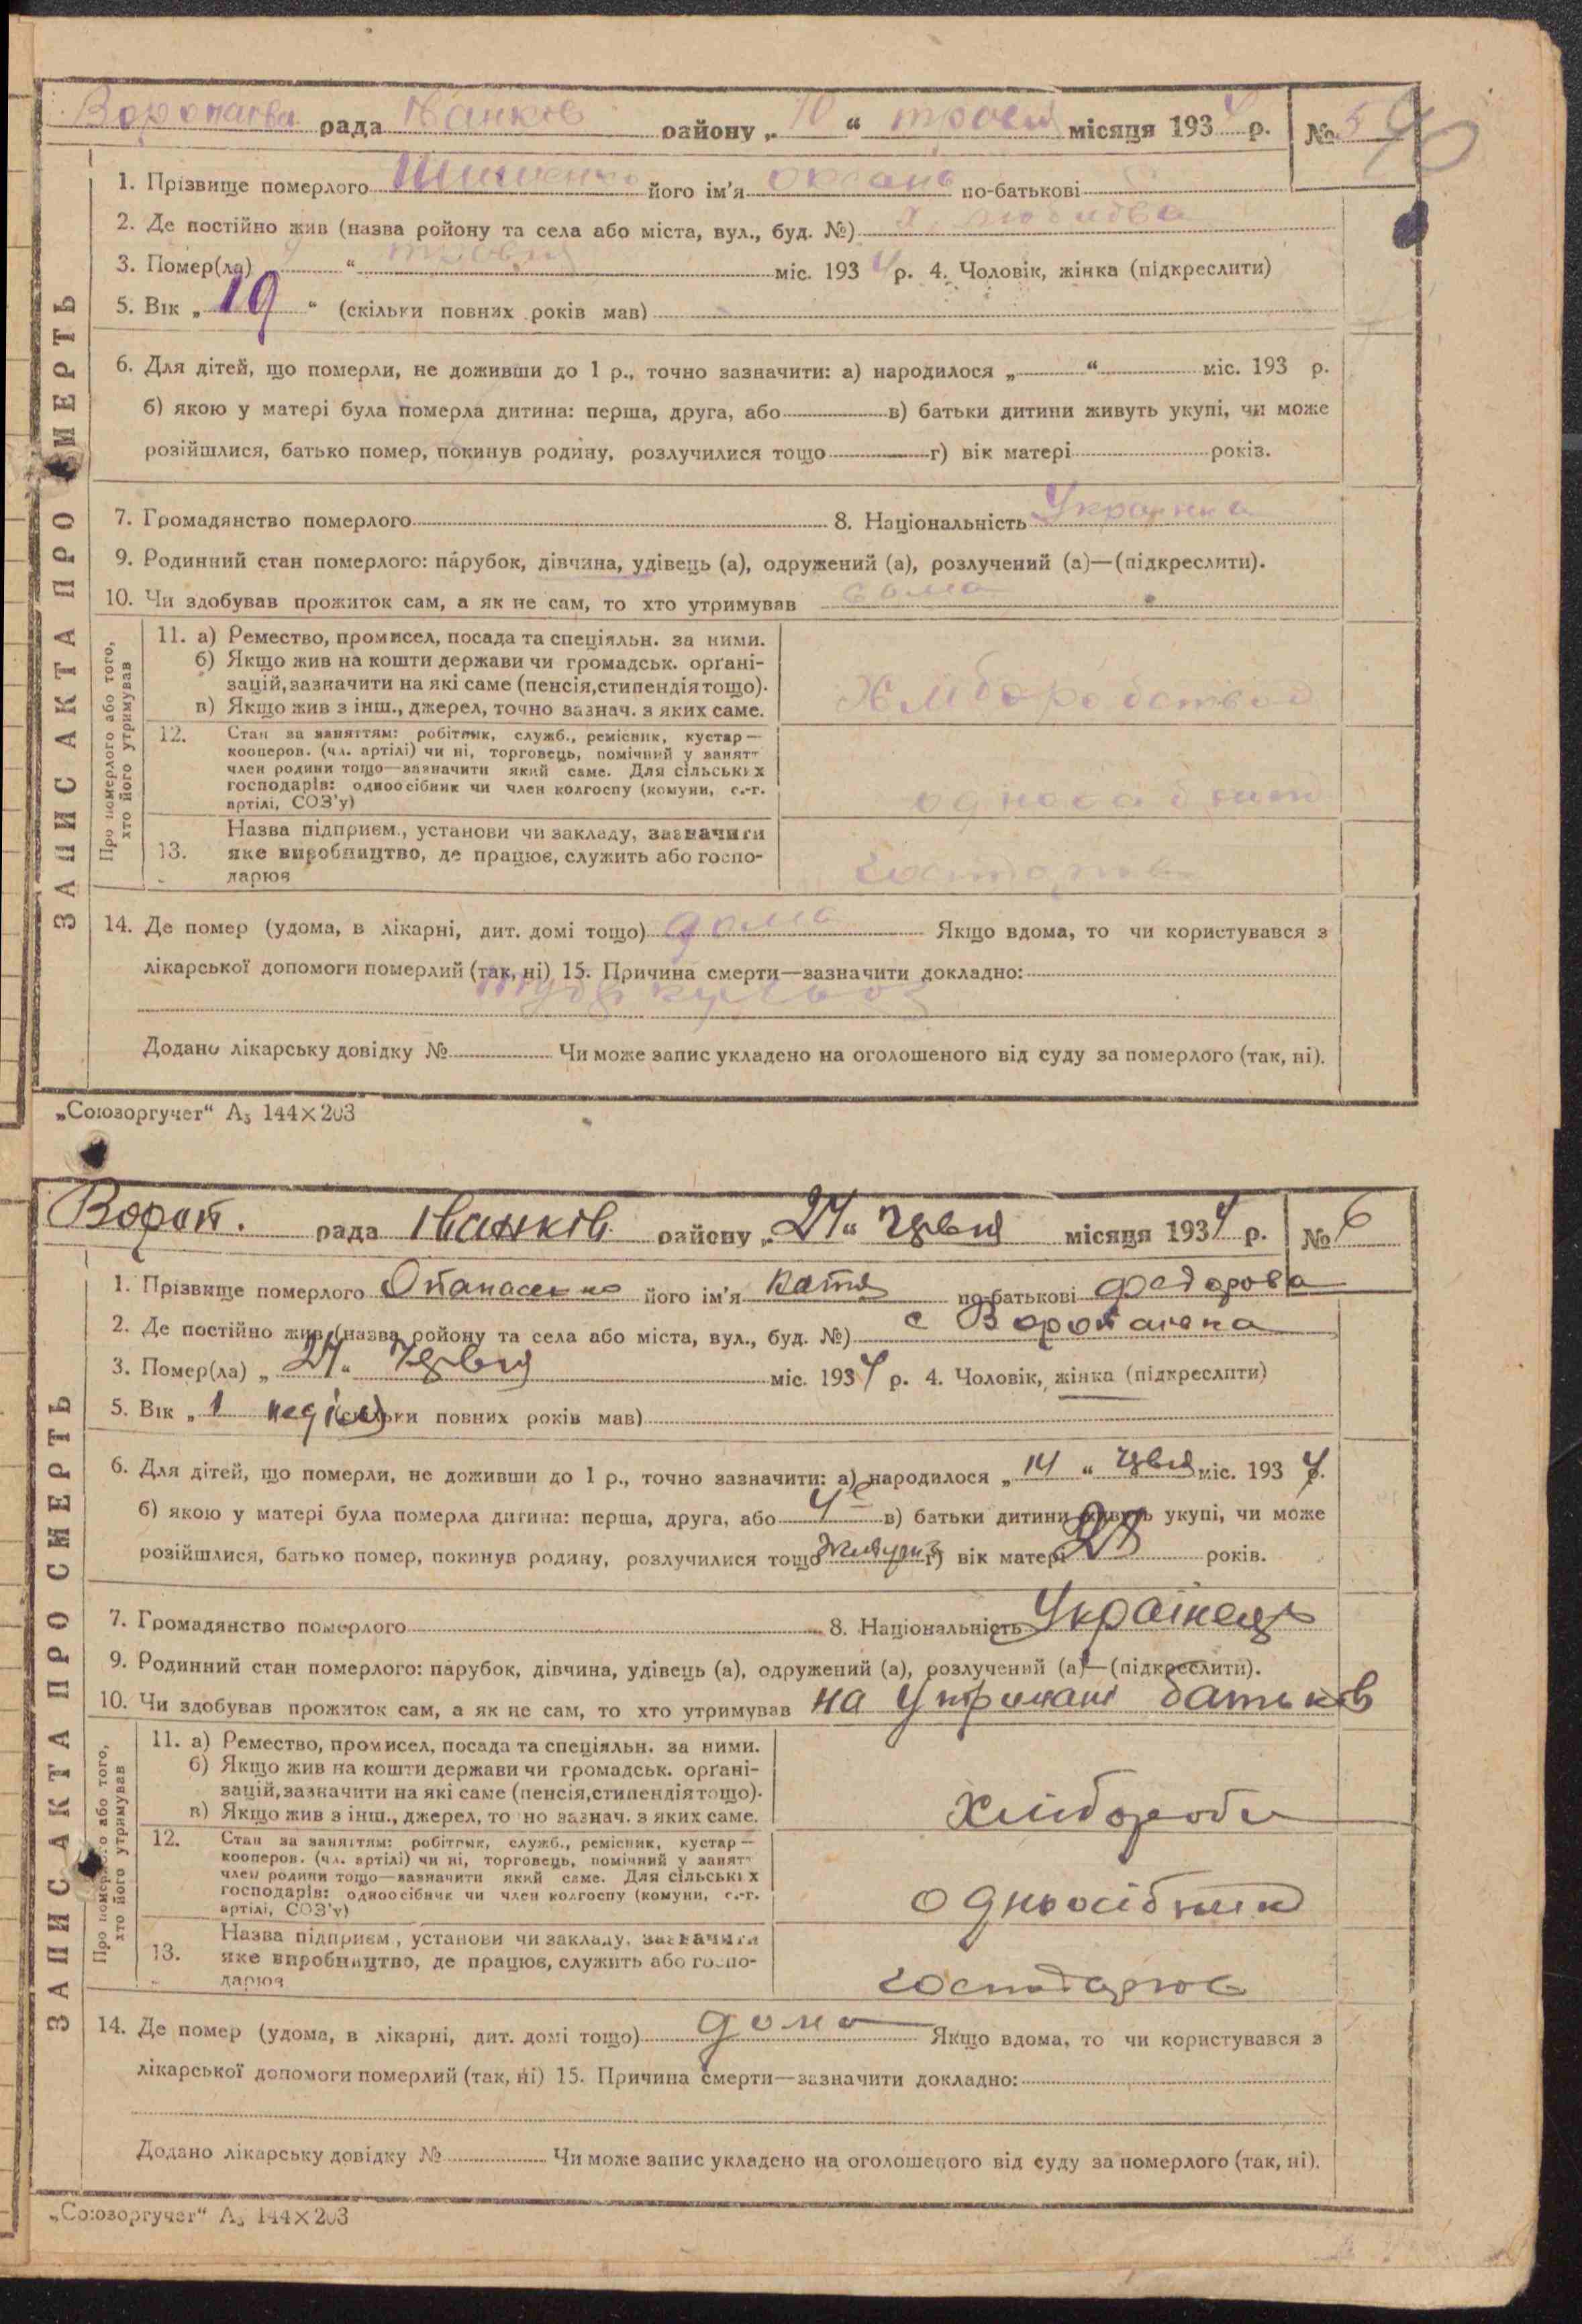 рада Іванків району „ 10 “ травня місяця 1934 р. № 5
1. Прізвище померлого його ім'я Оксана по-батькові
2. Де постійно жив (назва ройону та села або міста, вул., буд. №)
3. Помер(ла) “ травня міс. 1934 р. 4. Чоловік, жінка (підкреслити)
5. Вік „ 19 “ (скільки повних років мав)
6. Для дітей, що померли, не доживши до 1 р., точно зазначити: а) народилося „ “ міс. 193 р.
б) якою у матері була померла дитина: перша, друга, або в) батьки дитини живуть укупі, чи може
розійшлися, батько помер, покинув родину, розлучилися тощо г) вік матері років.
7. Громадянство померлого 8. Національність Українка
9. Родинний стан померлого: парубок, дівчина, удівець (а), одружений (а), розлучений (а)—(підкреслити).
10. Чи здобував прожиток сам, а як не сам, то хто утримував сама
ЗАПИС АКТА ПРО СМЕРТЬ
Про померлого або того, хто його утримував
11. а) Ремество, промисел, посада та спеціяльн. за ними.
б) Якщо жив на кошти держави чи громадськ. орґані-
зацій, зазначити на які саме (пенсія, стипендія тощо).
в) Якщо жив з інш., джерел, точно зазнач. з яких саме.
12. Стан за заняттям: робітник, служб., ремісник, кустар—
кооперов. (чл. артілі) чи ні, торговець, помічний у занятт
член родини тощо—зазначити який саме. Для сільських
господарів: одноосібник чи член колгоспу (комуни, с.-г.
артілі, СОЗ'у)
13. Назва підприєм., установи чи закладу, зазначити
яке виробництво, де працює, служить або госпо-
дарює
14. Де помер (удома, в лікарні, дит. домі тощо) дома Якщо вдома, то чи користувався з
лікарської допомоги померлий (так, ні) 15. Причина смерти—зазначити докладно:
Додано лікарську довідку № Чи може запис укладено на оголошеного від суду за померлого (так, ні).
„Союзоргучет“ А₅ 144×203
Ворот. рада Іванків району „ 21 “ місяця 1934 р. № 6
1. Прізвище померлого Опанасенко його ім'я Катя по-батькові Федорова
2. Де постійно жив (назва ройону та села або міста, вул., буд. №) с
3. Помер(ла) „ 21 “ міс. 1934 р. 4. Чоловік, жінка (підкреслити)
5. Вік „ 1 неділя (скільки повних років мав)
6. Для дітей, що померли, не доживши до 1 р., точно зазначити: а) народилося „ 14 “ міс. 1934 р.
б) якою у матері була померла дитина: перша, друга, або 4 в) батьки дитини живуть укупі, чи може
розійшлися, батько помер, покинув родину, розлучилися тощо г) вік матері років.
7. Громадянство померлого 8. Національність Українець
9. Родинний стан померлого: парубок, дівчина, удівець (а), одружений (а), розлучений (а)—(підкреслити).
10. Чи здобував прожиток сам, а як не сам, то хто утримував на утримані батьків
ЗАПИС АКТА ПРО СМЕРТЬ
Про померлого або того, хто його утримував
11. а) Ремество, промисел, посада та спеціяльн. за ними.
б) Якщо жив на кошти держави чи громадськ. орґані-
зацій, зазначити на які саме (пенсія, стипендія тощо).
в) Якщо жив з інш., джерел, то но зазнач. з яких саме.
Хлібороби
12. Стан за заняттям: робітник, служб., ремісник, кустар—
кооперов. (чл. артілі) чи ні, торговець, помічний у занятт
член родини тощо—зазначити який саме. Для сільських
господарів: одноосібник чи член колгоспу (комуни, с.-г.
артілі, СОЗ'у)
одноосібник
13. Назва підприєм., установи чи закладу, зазначити
яке виробництво, де працює, служить або госпо-
дарює
господарює
14. Де помер (удома, в лікарні, дит. домі тощо) дома Якщо вдома, то чи користувався з
лікарської допомоги померлий (так, ні) 15. Причина смерти—зазначити докладно:
Додано лікарську довідку № Чи може запис укладено на оголошеного від суду за померлого (так, ні).
„Союзоргучет“ А₅ 144×203